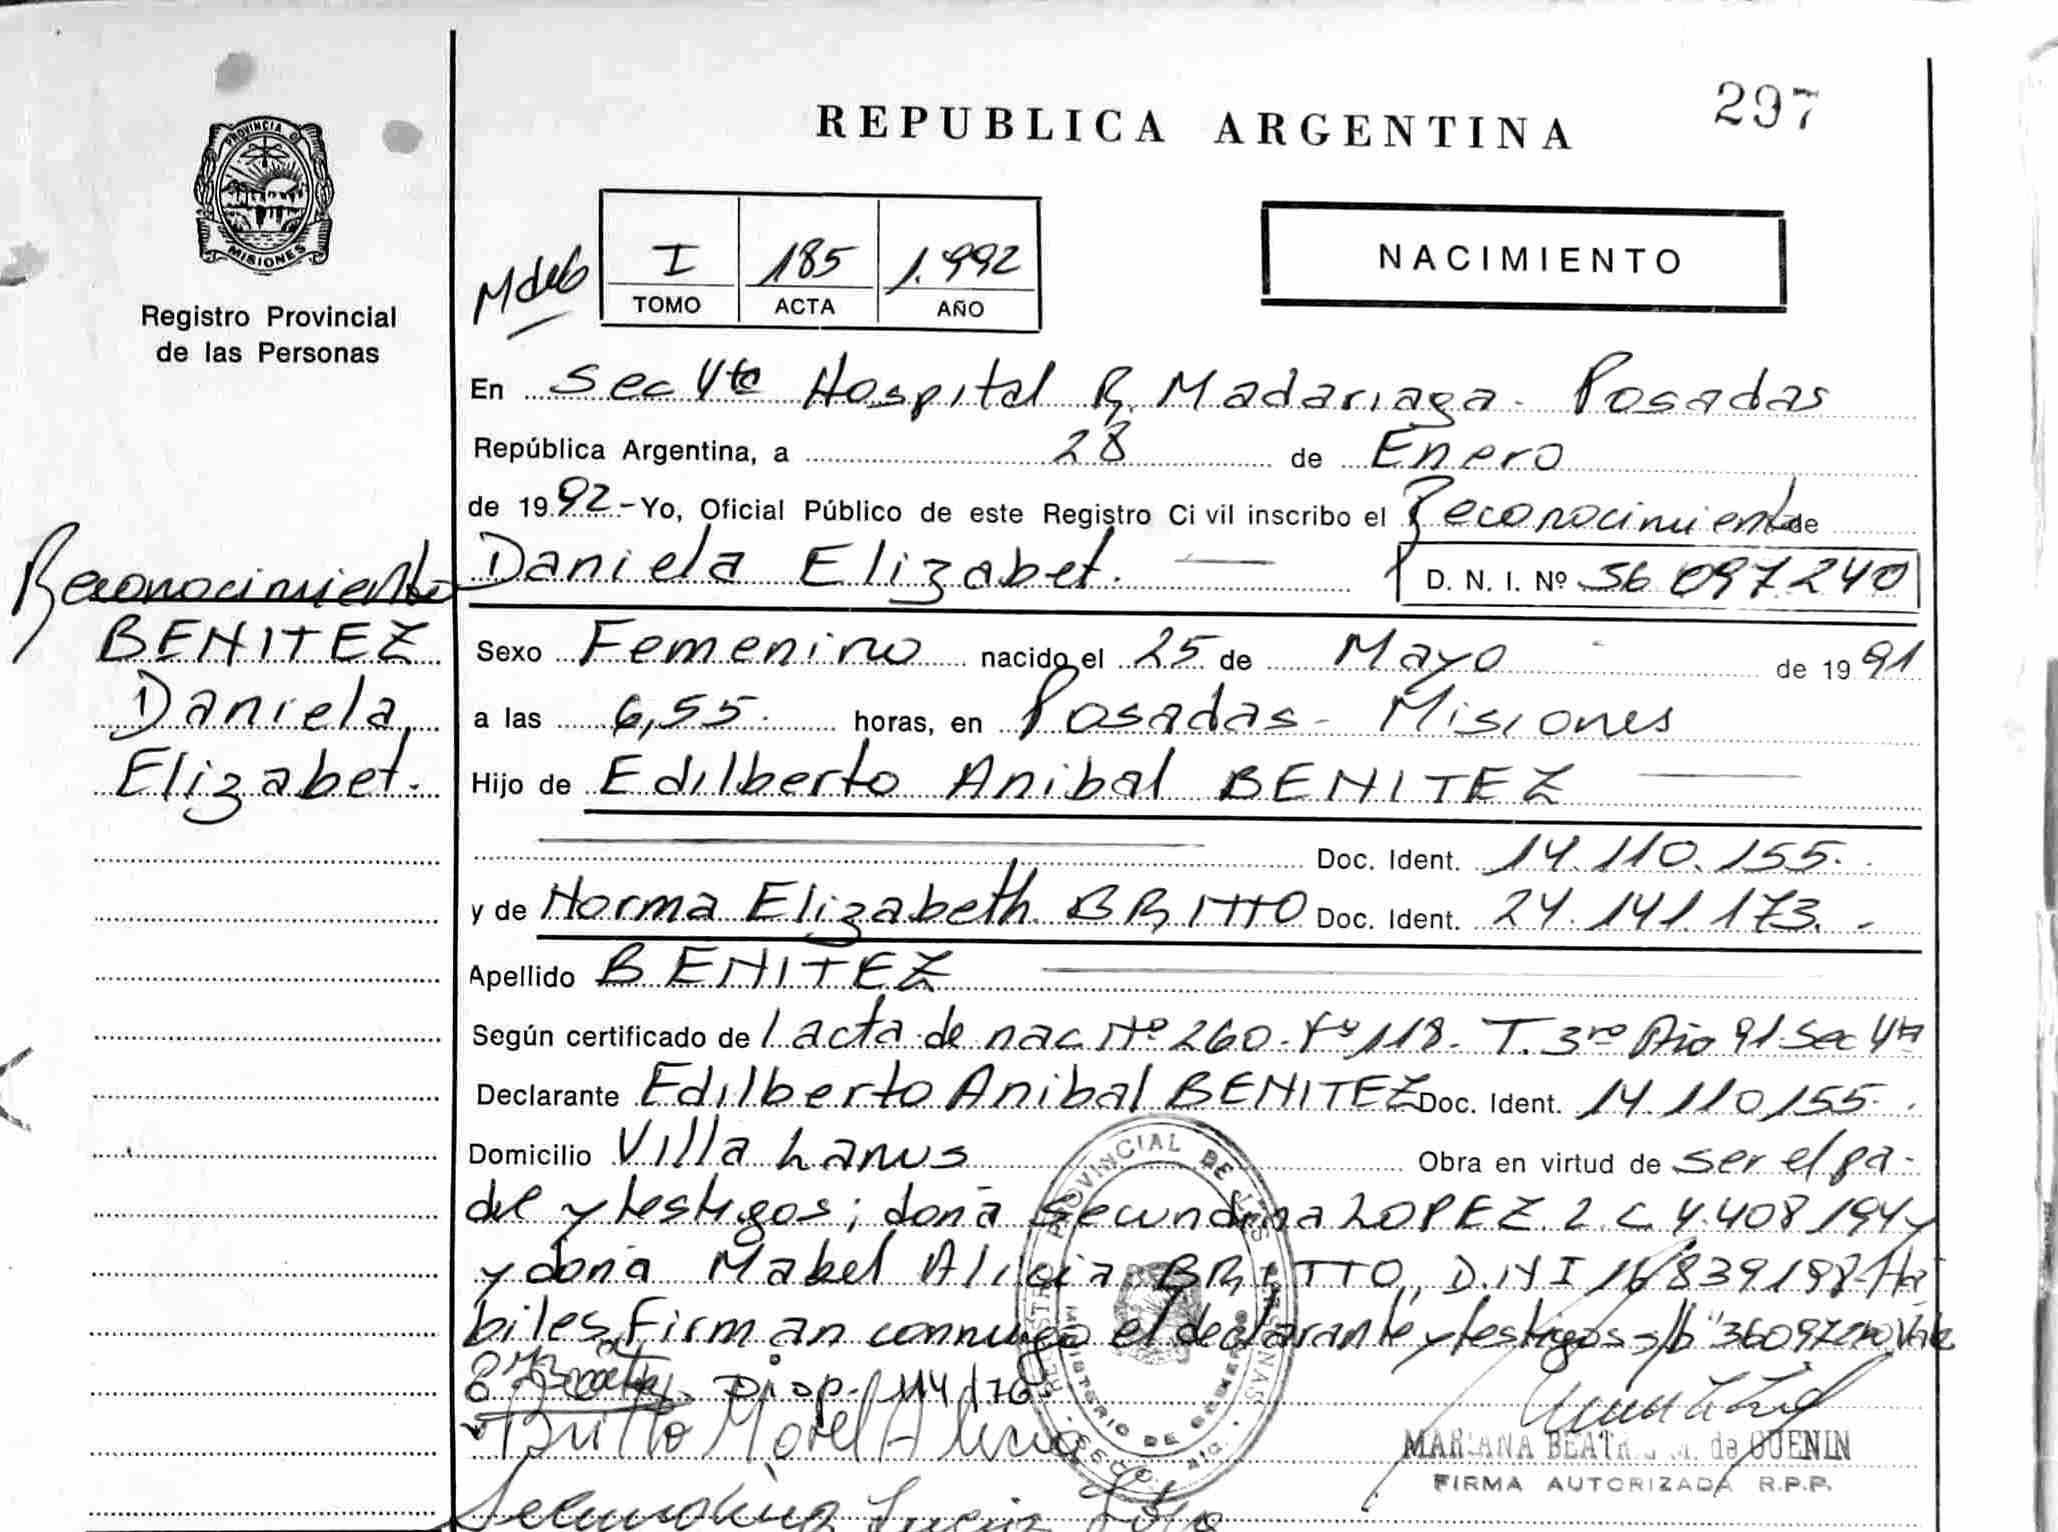 297
REPUBLICA ARGENTINA
PROVINCIA DE
MISIONES
Registro Provincial
de las Personas
I 185 1.992
TOMO ACTA AÑO
NACIMIENTO
En Sec 4ta Hospital R. Madariaga - Posadas
República Argentina, a 28 de Enero
de 1992 - Yo, Oficial Público de este Registro Civil inscribo el Reconocimiento de
Daniela Elizabet. D. N. I. Nº 36 097 240
Reconocimiento
BENITEZ
Daniela
Elizabet.
Sexo Femenino nacido el 25 de Mayo de 1991
a las 6,55 horas, en Posadas - Misiones
Hijo de Edilberto Anibal BENITEZ
Doc. Ident. 14.110.155.
y de Norma Elizabeth BRITTO Doc. Ident. 24.141.173.
Apellido BENITEZ
Según certificado de l acta de nac Nº 260 - Fº 118 - T. 3ro Año 91 Sec 4ta
Declarante Edilberto Anibal BENITEZ Doc. Ident. 14.110.155
Domicilio Villa Lanus Obra en virtud de ser el pa-
dre y testigos; doña Secundina LOPEZ L C 4.408.194 y
y doña Mabel Alicia BRITTO, D.N I 16 839 198 Há
biles, Firman conmigo el declarante y testigos s/b "36097240 Vale
Disp. 114/76
Britto Mabel Alicia
MARIANA BEATR de GUENIN
FIRMA AUTORIZADA R.P.P.
REGISTRO PROVINCIAL DE LAS PERSONAS
MINISTERIO DE GOBIERNO